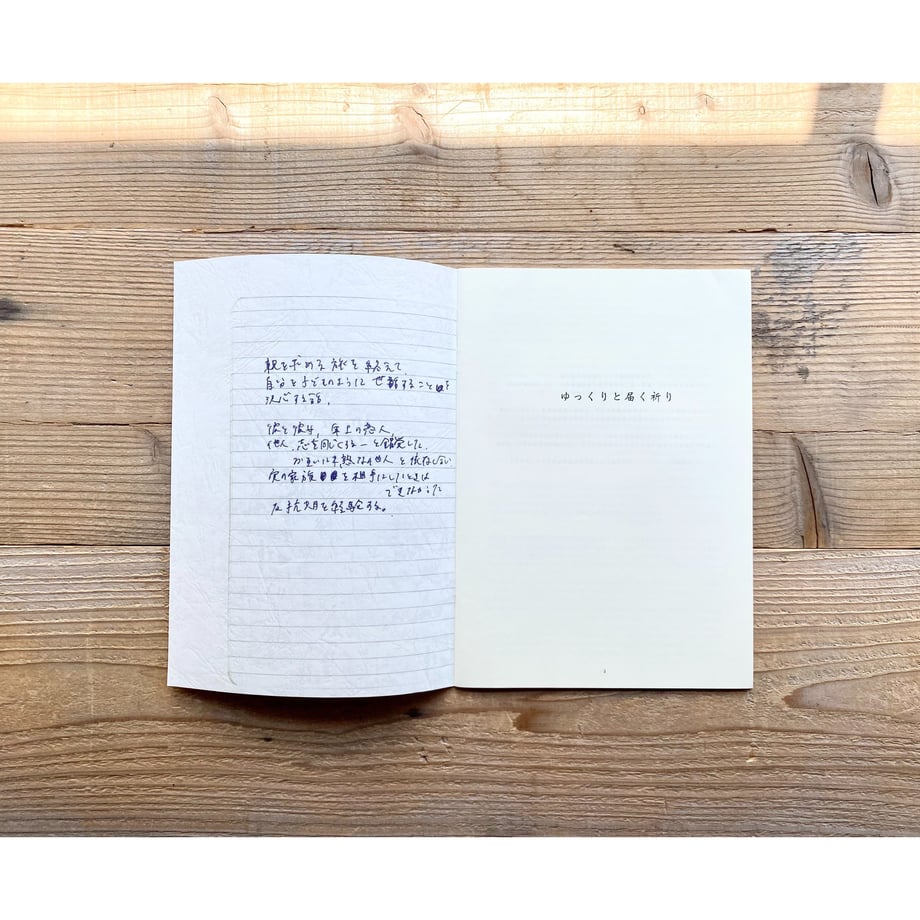 親を求める旅を終えて、
自分を子どものように世話することを
決心する話。
彼と彼女、年上の恋人、
他人、志を同じくする一と錯覚した
お互いに未熟な他人と依存し合い
実の家族を相手にしたときは
できなかった
反抗期を経験する。
ゆっくりと届く祈り